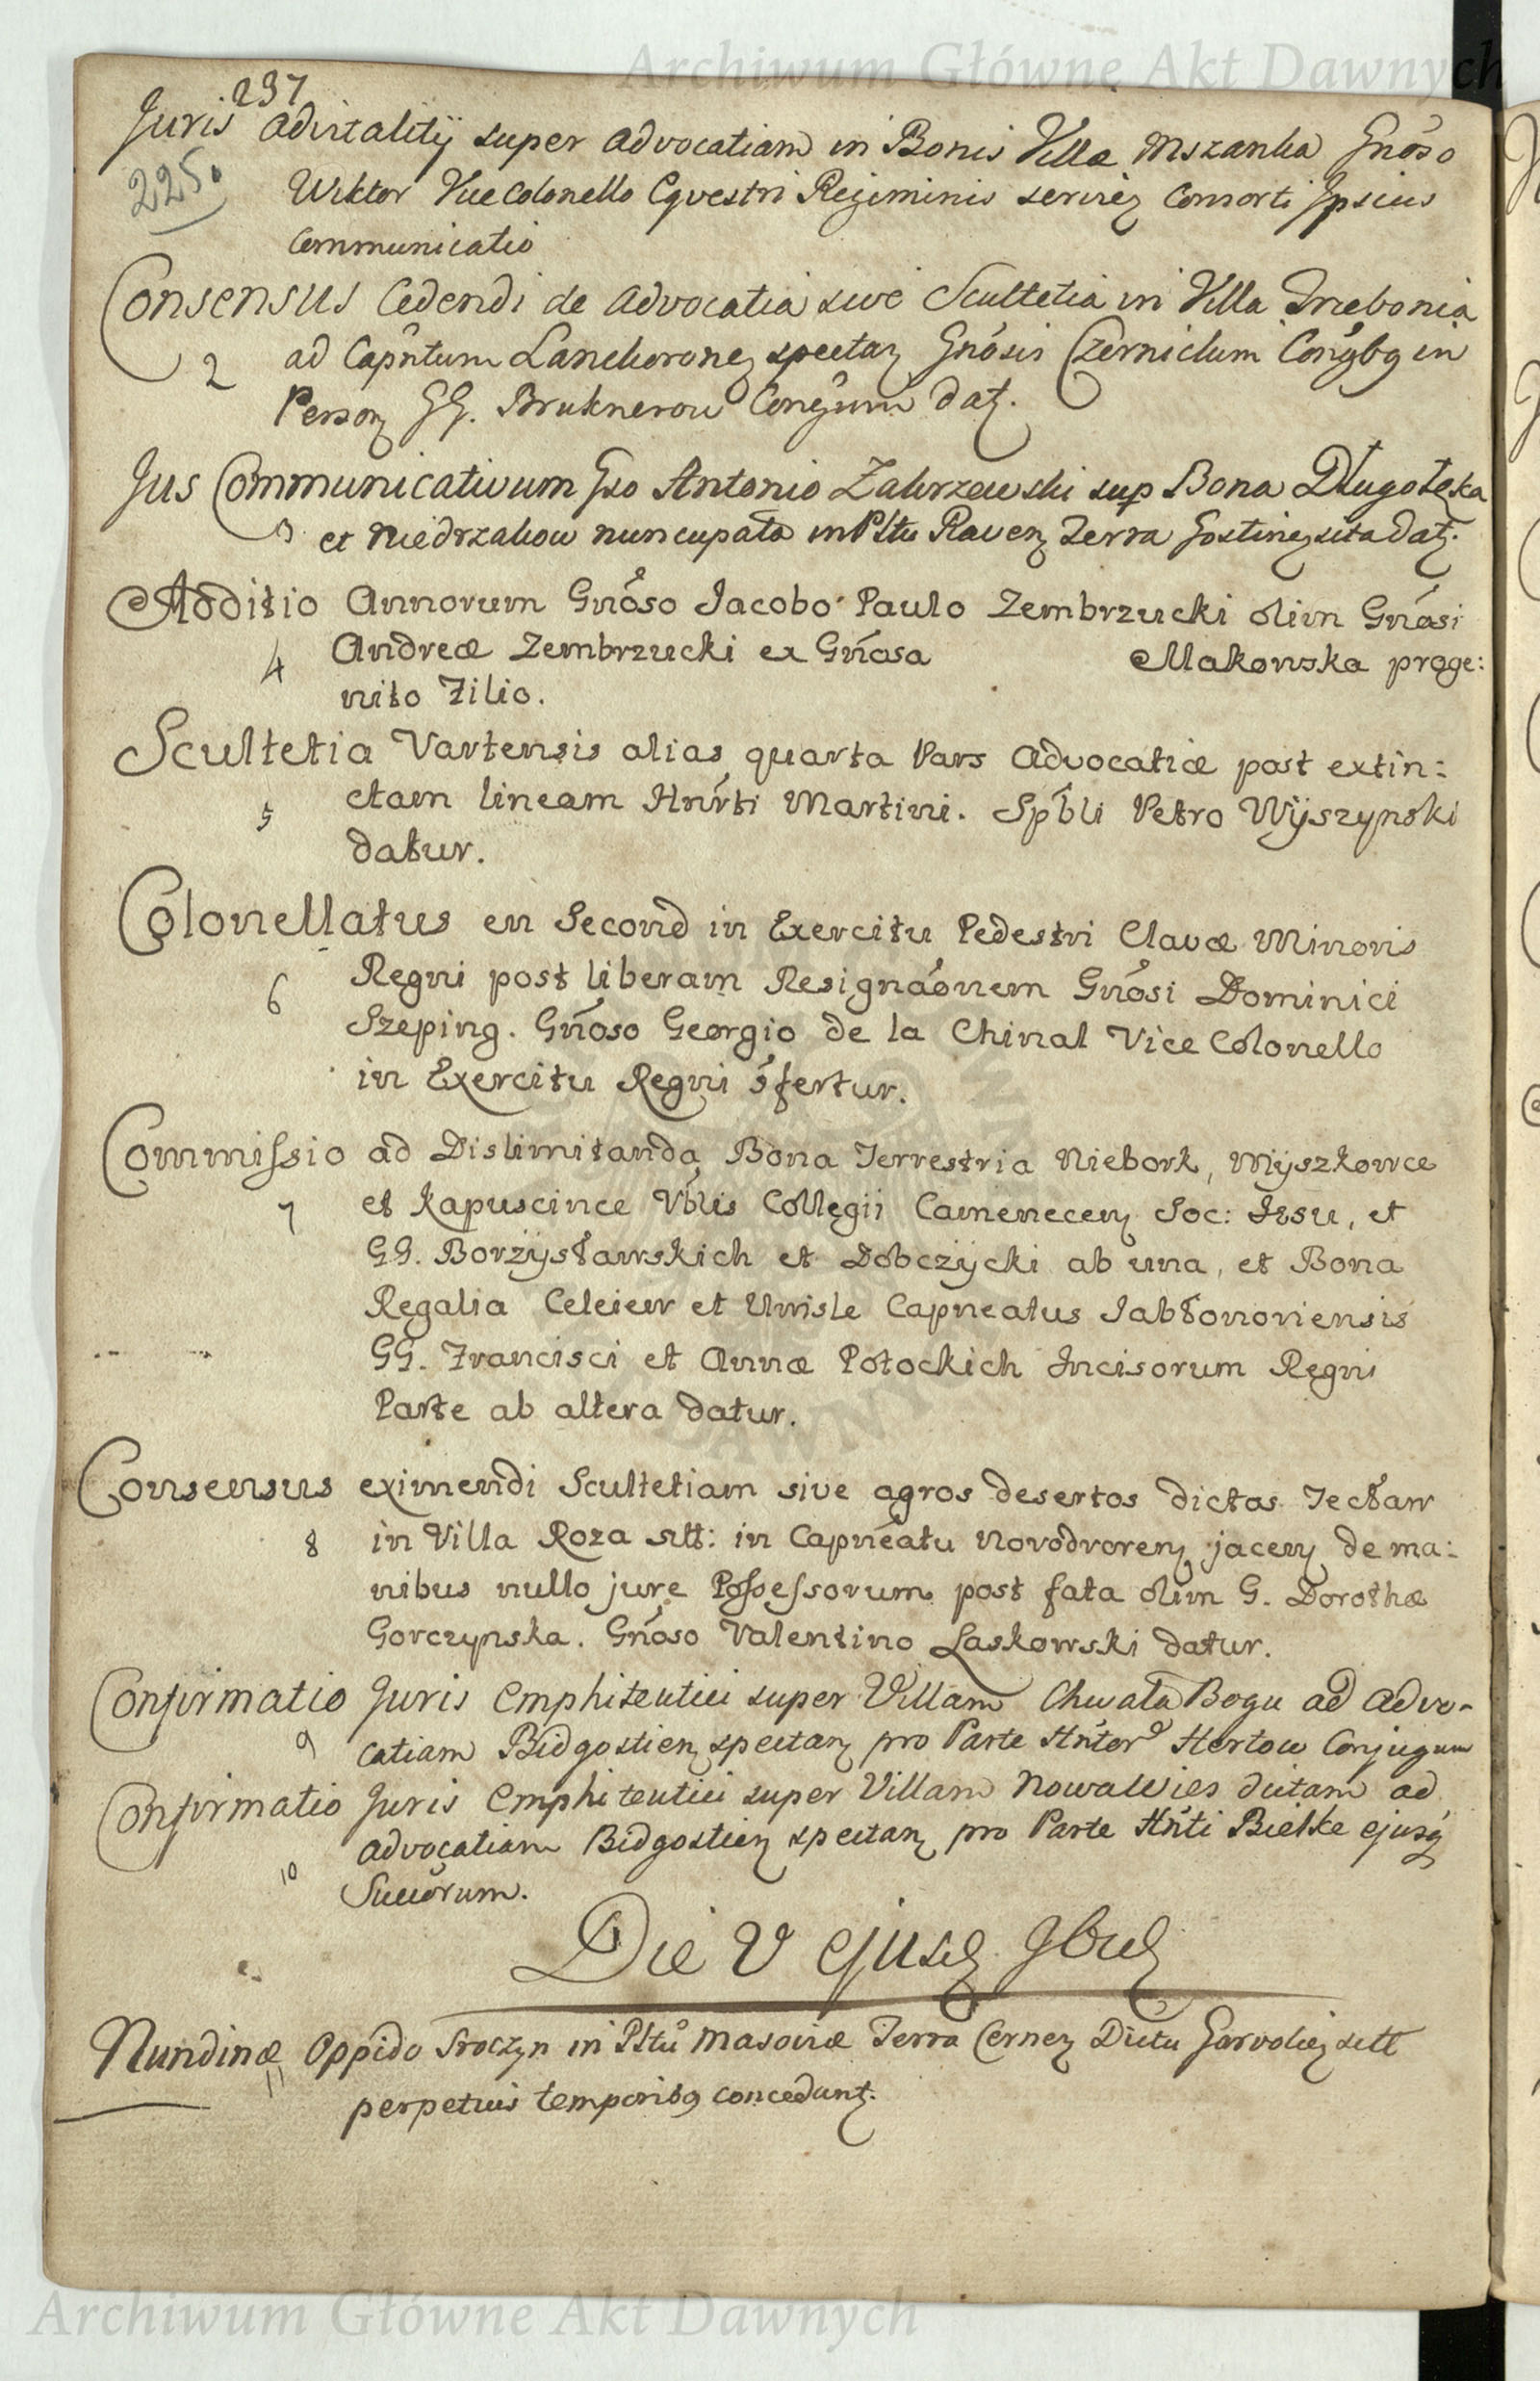 Archiwum Główne Akt Dawnych
237
Juris advitalitÿ super advocatiam in Bonis Villæ Mszanka Gnoso
225.
Wiktor Vice Colonello Eqvestri Regiminis servien Consorti Ipsius
communicatio
Consensus Cedendi de advocatia sive Scultetia in Villa Trzebonia
2 ad Capntum Lanckoronen spectan Gnosis Czernickim Conjgbg in
Person GG. Bruknerow Conjgum dat.
Jus Communicativum Gso Antonio Zakrzewski sup Bona Długołęka
3 et Niedrzakow nuncupata in Pltu Raven Terra Gostinen sita dat.
Additio Annorum Gnoso Jacobo Paulo Zembrzucki olim Gnosi
4 Andreæ Zembrzucki ex Gnosa Makowska proge:
nito Filio.
Scultetia Vartensis alias quarta Pars Advocatiæ post extin:
5 ctam lineam Hnrti Martini. Spbli Petro Wÿszynski
datur.
Colonellatus en Second in Exercitu Pedestri Clavæ Minoris
6 Regni post liberam Resignaonem Gnosi Dominici
Szeping. Gnoso Georgio de la Chinal Vice Colonello
in Exercitu Regni sfertur.
Commissio ad Dislimitanda Bona Terrestria Niebork, Mÿszkowce
7 et Kapuscince Vblis Collegii Camenecen Soc: Jesu, et
GG. Borzÿsławskich et Dobczÿcki ab una, et Bona
Regalia Celeiew et Uwisle Capneatus Jabłonoviensis
GG. Francisci et Annæ Potockich Incisorum Regni
Parte ab altera datur.
Consensus eximendi Scultetiam sive agros desertos dictos Jectaw
8 in Villa Roza sitt: in Capneatu Novodvoren jacen de ma:
nibus nullo jure Possessorum post fata olim G. Dorothæ
Gorczynska. Gnoso Valentino Laskowski datur.
Confirmatio Juris Emphiteutici super Villam Chwała Bogu ad advo-
9 catiam Bidgostien spectan pro Parte Hntor Hertow Conjugum
Confirmatio Juris Emphiteutici super Villam Nowawies dictam ad
advocatiam Bidgostien spectan pro Parte Hnti Bielke ejusq
10 Succorum.
Die V ejusd
Nundinæ Oppido Sroczyn in Pltu Masoviæ Terra Cernen Dictu Garvolien sitt
11 perpetuis temporibg concedunt.
Archiwum Główne Akt Dawnych